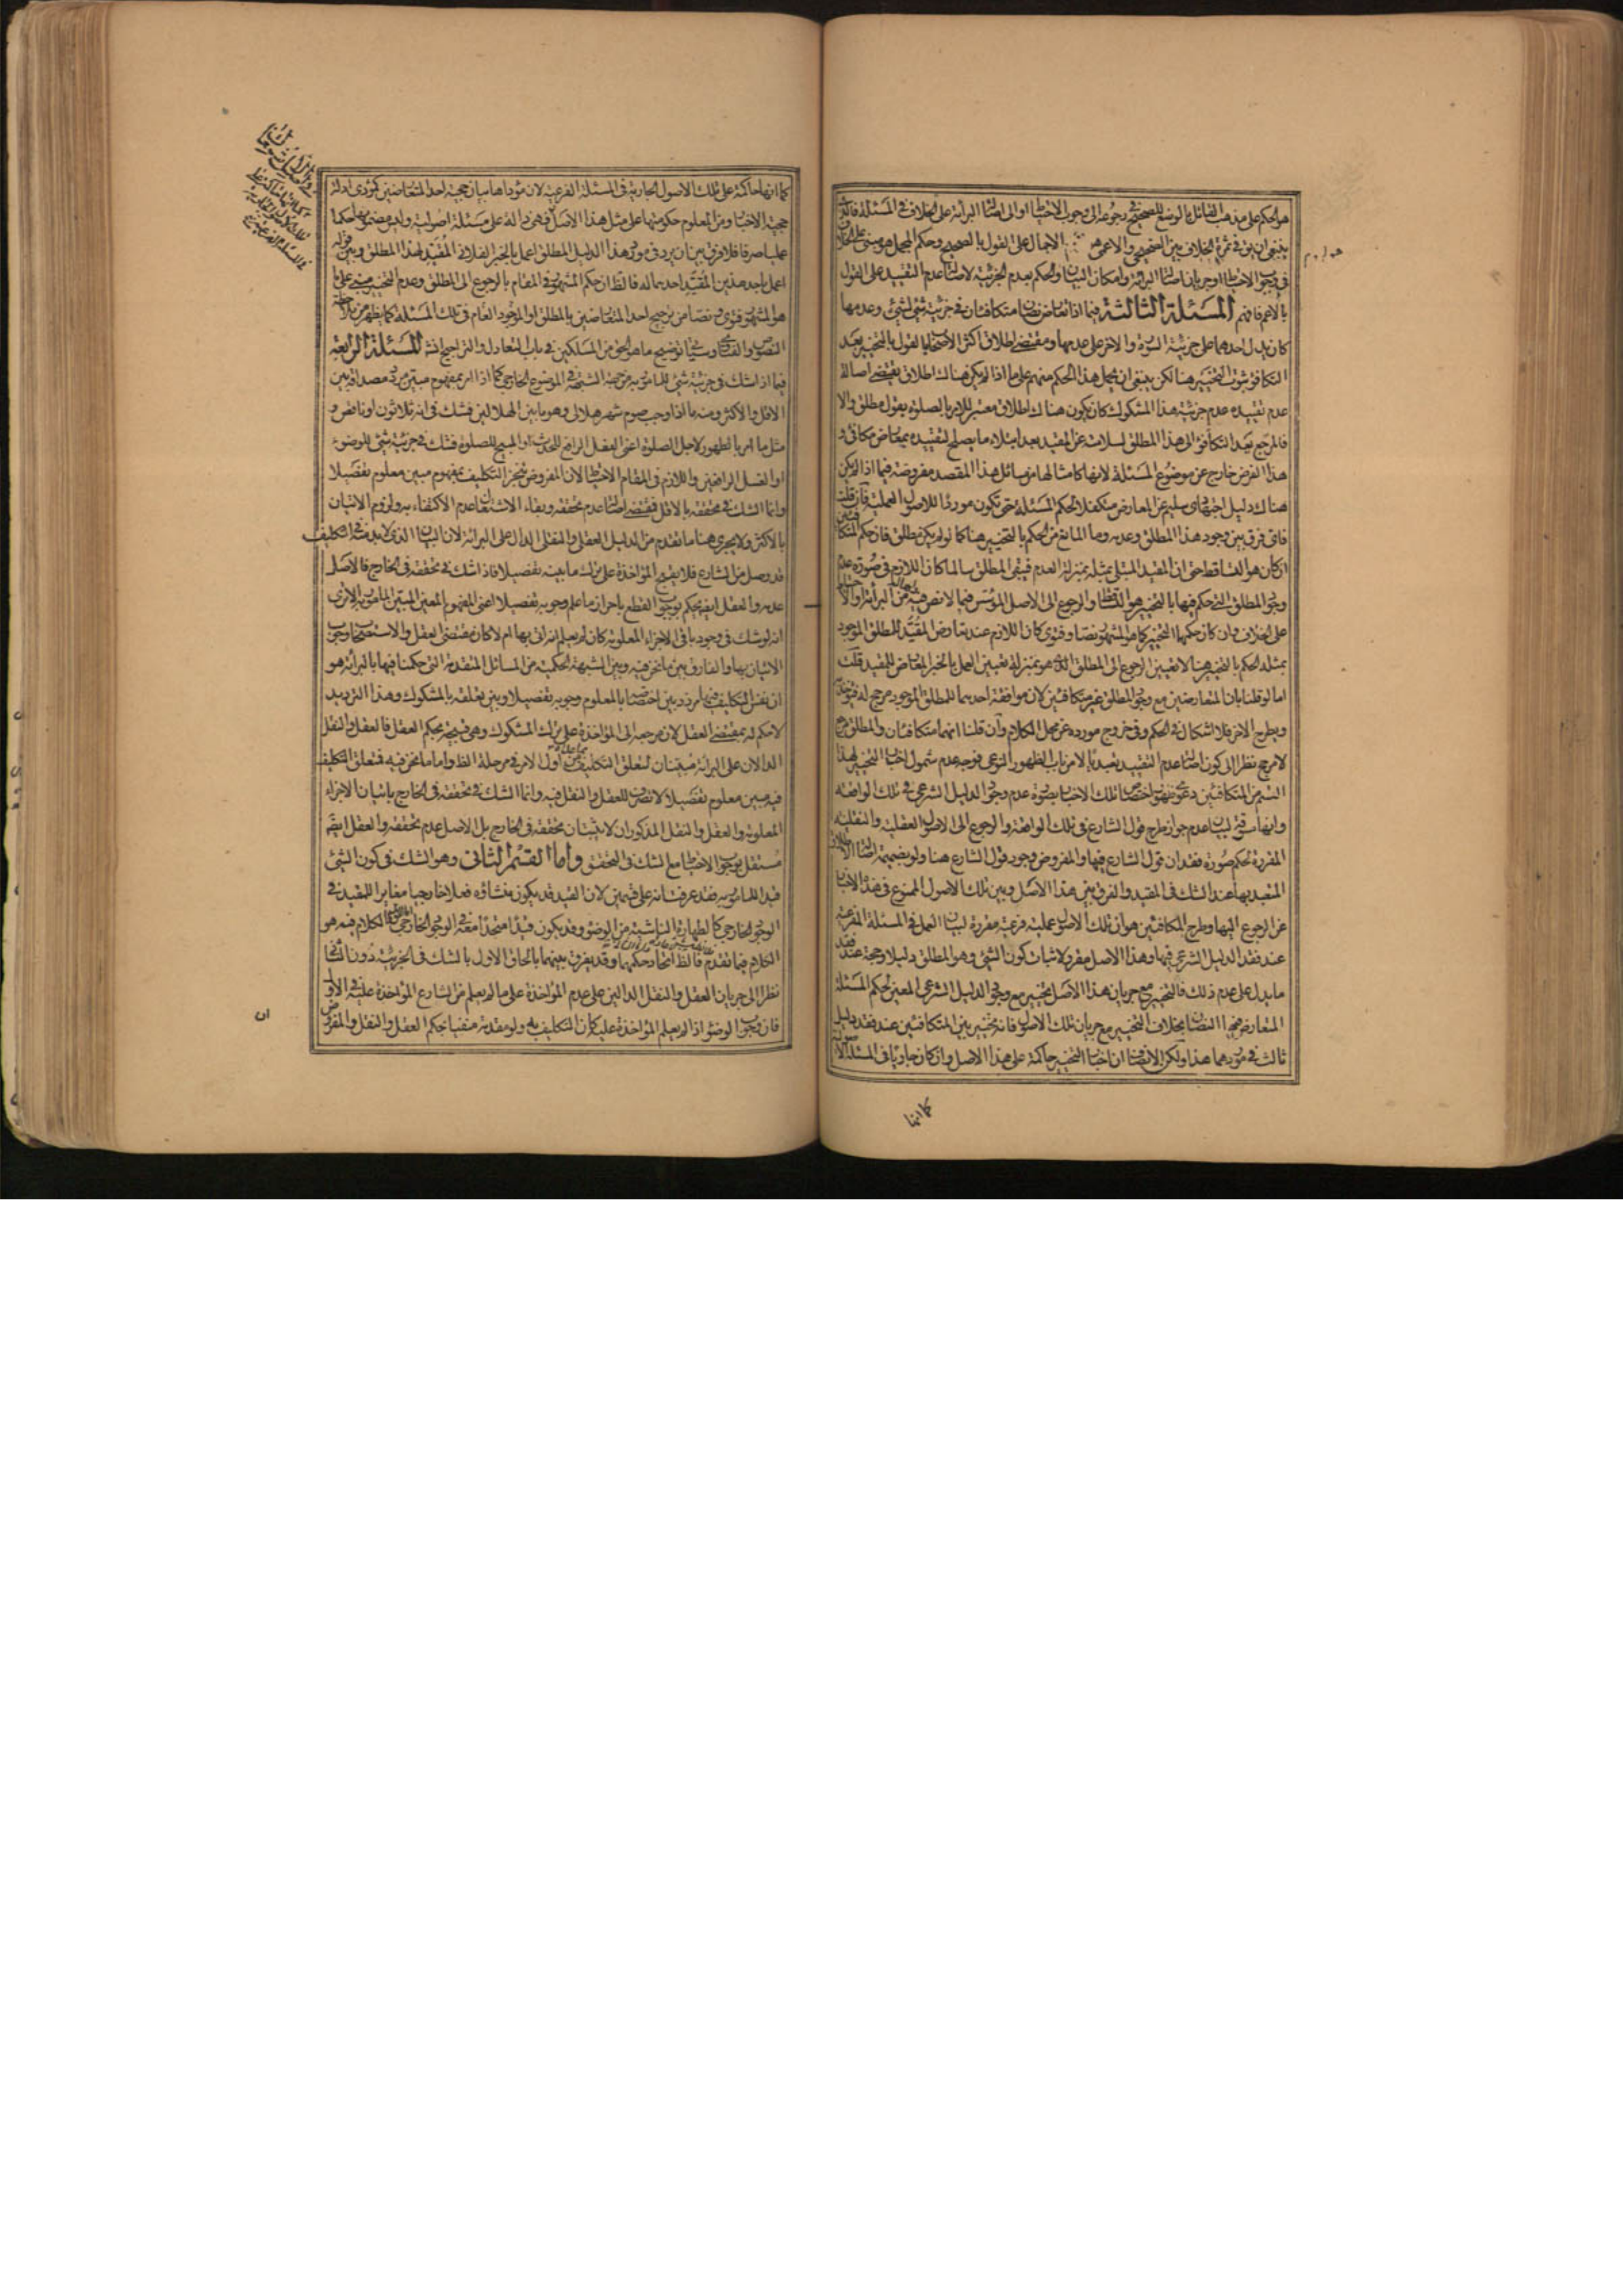 هو الحكم على مذهب القائل بالوضع للصحيح في رجوعه الى وجوب الاحتياط او الى اصالة البرائة على الخلاف في المسئلة فالذى
ينبغى ان يق في ثمرة الخلاف بين الصحيحى والاعمى هو الاجمال على القول بالصحيح وحكم المجمل هو مبنى على الخلاف
في وجوب الاحتياط او جريان اصالة البرائة وامكان البيان والحكم بعدم الجزئية لاصالة عدم التقييد على القول
بالاعم فافهم المسئلة الثالثة فيما اذا تعارض نصان متكافئان في جزئية شئ لشئ وعدمها
كان يدل احدهما على جزئية السورة والاخر على عدمها ومقتضى اطلاق اكثر الاصحاب القول بالتخيير بعد
التكافؤ ثبوت التخيير هنا لكن ينبغى ان يحمل هذا الحكم منهم على ما اذا لم يكن هناك اطلاق يقتضى اصالة
عدم تقييده عدم جزئية هذا المشكوك كان يكون هناك اطلاق معتبر للامر بالصلوة بقول مطلق والا
فالمرجع بعد التكافؤ الى هذا المطلق لسلامته عن المقيد بعد ابتلاء ما يصلح لتقييده بمعارض مكافئ و
هذا الفرض خارج عن موضوع المسئلة لانها كامثالها من مسائل هذا المقصد مفروضة فيما اذا لم يكن
هناك دليل اجتهادى سليم عن المعارض متكفلا لحكم المسئلة حتى تكون موردا للاصول العملية فان قلت
فاى فرق بين وجود هذا المطلق وعدمه وما المانع من الحكم بالتخيير هنا كما لو لم يكن مطلق فان حكم المتكافئين
ان كان هو التساقط حتى ان المقيد المبتلى بمثله بمنزلة العدم فيبقى المطلق سالما كان اللازم في صورة عدم
وجود المطلق التي حكم فيها بالتخيير هو التساقط والرجوع الى الاصل المؤسس فيما لا نص فيه من البرائة والاحتياط
على الخلاف وان كان حكمهما التخيير كما هو المشهور نصا وفتوى كان اللازم عند تعارض المقيد للمطلق الموجود
بمثله الحكم بالتخيير هنا لا تعيين الرجوع الى المطلق الذى هو بمنزلة تعيين العمل بالخبر المعارض للمقيد قلت
اما لو قلنا بان المتعارضين مع وجود المطلق غير متكافئين لان موافقة احدهما للمطلق الموجود مرجح له فيؤخذ به
ويطرح الاخر فلا اشكال في الحكم وفي خروج مورده عن محل الكلام وان قلنا انهما متكافئان والمطلق مرجع
لا مرجح نظرا الى كون اصالة عدم التقييد تعبديا لا من باب الظهور النوعى فوجه عدم شمول اخبار التخيير لهذا
القسم من المتكافئين دعوى ظهور اختصاص تلك الاخبار بصورة عدم وجود الدليل الشرعى في تلك الواقعة
وانها مسوقة لبيان عدم جواز طرح قول الشارع في تلك الواقعة والرجوع الى الاصول العقلية والنقلية
المقررة لحكم صورة فقدان قول الشارع فيها والمفروض وجود قول الشارع هنا ولو بضميمة اصالة الاطلاق
المتعبد بها عند الشك في المقيد والفرق بين هذا الاصل وبين تلك الاصول الممنوع في هذه الاخبار
عن الرجوع اليها وطرح المكافئين هو ان تلك الاصول عملية فرعية مقررة لبيان العمل في المسئلة الفرعية
عند فقد الدليل الشرعى فيها وهذا الاصل مقرر لاثبات كون الشئ وهو المطلق دليلا وحجة عند فقد
ما يدل على عدم ذلك فالتخيير مع جريان هذا الاصل تخيير مع وجود الدليل الشرعى المعين لحكم المسئلة
المتعارض فيها النصان بخلاف التخيير مع جريان تلك الاصول فانه تخيير بين المتكافئين عند فقد دليل
ثالث في موردهما هذا ولكن الانصاف ان اخبار التخيير حاكمة على هذا الاصل وان كان جاريا في المسئلة الاصولية
كما انها
كما انها حاكمة على تلك الاصول الجارية في المسئلة الفرعية لان مؤداها بيان حجية احد المتعارضين كمؤدى ادلة
حجية الاخبار ومن المعلوم حكومتها على مثل هذا الاصل فهى دالة على مسئلة اصولية وليس مضمونها حكما
عمليا صرفا فلا فرق بين ان يرد في مورد هذا الدليل المطلق اعمل بالخبر الفلانى المقيد لهذا المطلق وبين قوله
اعمل باحد هذين المقيد احدهما له فالظ ان حكم المشهور في المقام بالرجوع الى المطلق وعدم التخيير مبنى على ما
هو المشهور فتوى ونصا من ترجيح احد المتعارضين بالمطلق او العام الموجود في تلك المسئلة كما يظهر من ملاحظة
النصوص والفتاوى وسيأتى توضيح ما هو الحق من المسلكين في باب التعادل والتراجيح انش المسئلة الرابعة
فيما اذا شك في جزئية شئ للمامور به من جهة الشبهة في الموضوع الخارجى كما اذا امر بمفهوم مبين مردد مصداقه بين
الاقل والاكثر ومنه ما اذا وجب صوم شهر هلالى وهو ما بين الهلالين فشك في انه ثلاثون او ناقص و
مثل ما امر بالطهور لاجل الصلوة اعنى الفعل الرافع للحدث او المبيح للصلوة فشك في جزئية شئ للوضوء
او الغسل الرافعين واللازم في المقام الاحتياط لان المفروض تنجز التكليف بمفهوم مبين معلوم تفصيلا
وانما الشك في تحققه بالاقل فمقتضى اصالة عدم تحققه وبقاء الاشتغال عدم الاكتفاء به ولزوم الاتيان
بالاكثر ولا يجرى هنا ما تقدم من الدليل العقلى والنقلى الدال على البرائة لان البيان الذى لا بد منه في التكليف
قد وصل من الشارع فلا يقبح المؤاخذة على ترك ما بينه تفصيلا فاذا شك في تحققه في الخارج فالاصل
عدمه والعقل ايضا يحكم بوجوب القطع باحراز ما علم وجوبه تفصيلا اعنى المفهوم المعين المبين المامور به الا ترى
انه لو شك في وجود باقى الاجزاء المعلومة كان لم يعلم انه اتى بها ام لا كان مقتضى العقل والاستصحاب وجوب
الاتيان بها والفارق بين ما نحن فيه وبين الشبهة الحكمية من المسائل المتقدمة التي حكمنا فيها بالبرائة هو
ان نفس التكليف فيها مردد بين اختصاصه بالمعلوم وجوبه تفصيلا وبين تعلقه بالمشكوك وهذا الترديد
لا حكم له بمقتضى العقل لان مرجعه الى المؤاخذة على ترك المشكوك وهى قبيحة بحكم العقل فالعقل والنقل
الدالان على البرائة مبينان لمتعلق التكليف من اول الامر في مرحلة الظ واما ما نحن فيه فمتعلق التكليف
فيه مبين معلوم تفصيلا لا تصرف للعقل والنقل فيه وانما الشك في تحققه في الخارج باتيان الاجزاء
المعلومة والعقل والنقل المذكوران لا يثبتان تحققه في الخارج بل الاصل عدم تحققه والعقل ايضا
مستقل بوجوب الاحتياط مع الشك في التحقق واما القسم الثانى وهو الشك في كون الشئ
قيدا للمامور به فقد عرفت انه على قسمين لان القيد قد يكون منشاؤه فعلا خارجيا مغايرا للمقيد في
الوجود الخارجى كالطهارة الناشئة من الوضوء وقد يكون قيدا متحدا معه في الوجود الخارجى الكلام فيه هو
الكلام فيما تقدم فالظ اتحاد حكمهما وقد يفرق بينهما بالحاق الاول بالشك في الجزئية دون الثانى
نظرا الى جريان العقل والنقل الدالين على عدم المؤاخذة على ما لم يعلم من الشارع المؤاخذة عليه في الاول
فان وجوب الوضوء اذا لم يعلم المؤاخذة عليه كان التكليف به ولو مقدمة منفيا بحكم العقل والنقل والمفروض
ان